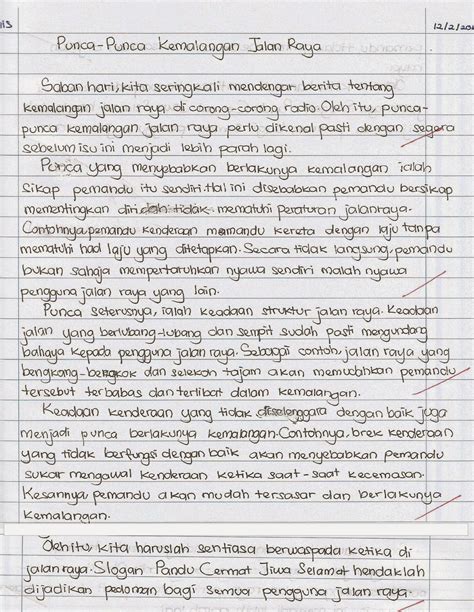 12/2/20
Punca-Punca Kemalangan Jalan Raya
Saban hari, kita seringkali mendengar berita tentang
kemalangan jalan raya di corong-corong radio. Oleh itu, punca-
punca kemalangan jalan raya perlu dikenal pasti dengan segera
sebelum isu ini menjadi lebih parah lagi.
Punca yang menyebabkan berlakunya kemalangan ialah
sikap pemandu itu sendiri. Hal ini disebabkan pemandu bersikap
mementingkan diri dan tidak mematuhi peraturan jalanraya.
Contohnya, pemandu kenderaan memandu kereta dengan laju tanpa
mematuhi had laju yang ditetapkan. Secara tidak langsung, pemandu
bukan sahaja mempertaruhkan nyawa sendiri malah nyawa
pengguna jalan raya yang lain.
Punca seterusnya, ialah keadaan struktur jalan raya. Keadaan
jalan yang berlubang-lubang dan sempit sudah pasti mengundang
bahaya kepada pengguna jalan raya. Sebagai contoh, jalan raya yang
bengkang-bengkok dan selekoh tajam akan memudahkan pemandu
tersebut terbabas dan terlibat dalam kemalangan.
Keadaan kenderaan yang tidak diselenggara dengan baik juga
menjadi punca berlakunya kemalangan. Contohnya, brek kenderaan
yang tidak berfungsi dengan baik akan menyebabkan pemandu
sukar mengawal kenderaan ketika saat-saat kecemasan.
Kesannya, pemandu akan mudah tersasar dan berlakunya
kemalangan.
Oleh itu, kita haruslah sentiasa berwaspada ketika di
jalanraya. Slogan Pandu Cermat Jiwa Selamat hendaklah
dijadikan pedoman bagi semua pengguna jalan raya.